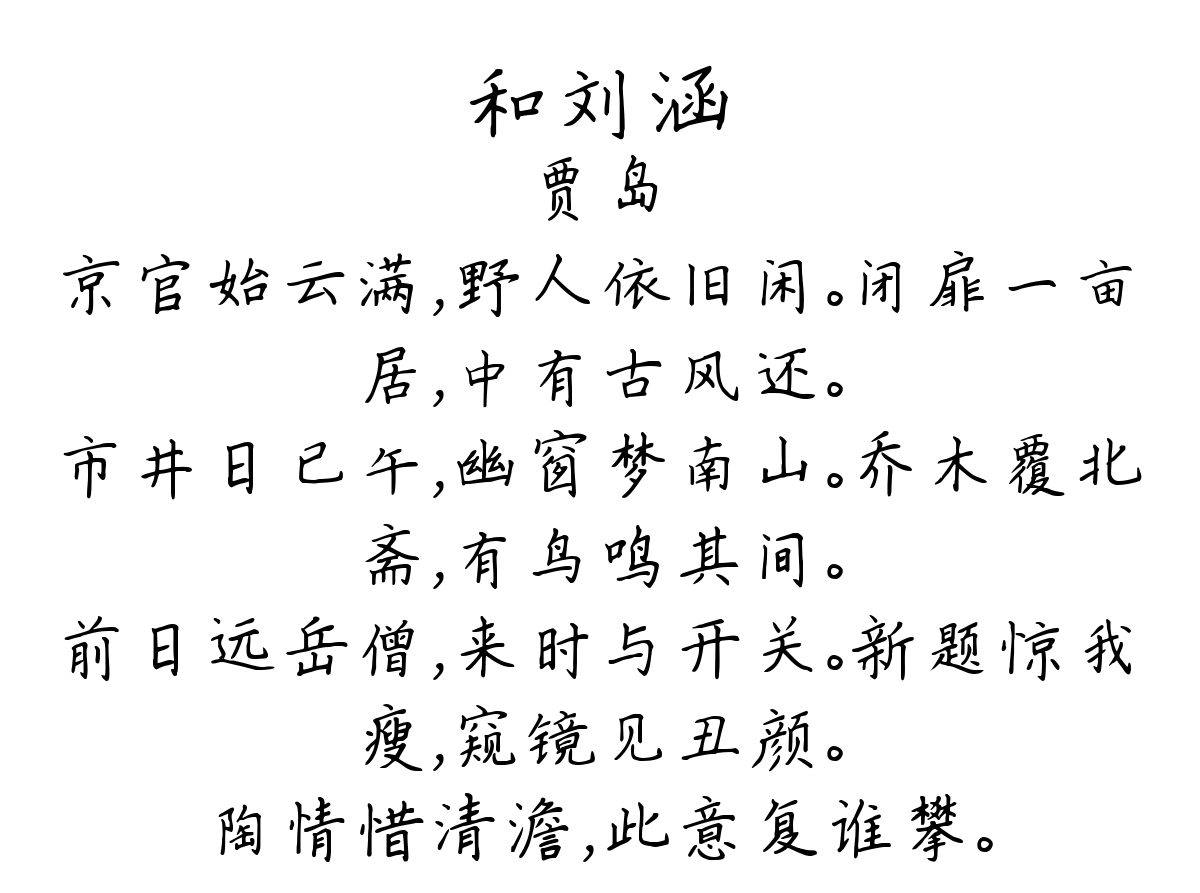 和刘涵
贾岛
京官始云满,野人依旧闲。闭扉一亩
居,中有古风还。
市井日已午,幽窗梦南山。乔木覆北
斋,有鸟鸣其间。
前日远岳僧,来时与开关。新题惊我
瘦,窥镜见丑颜。
陶情惜清澹,此意复谁攀。